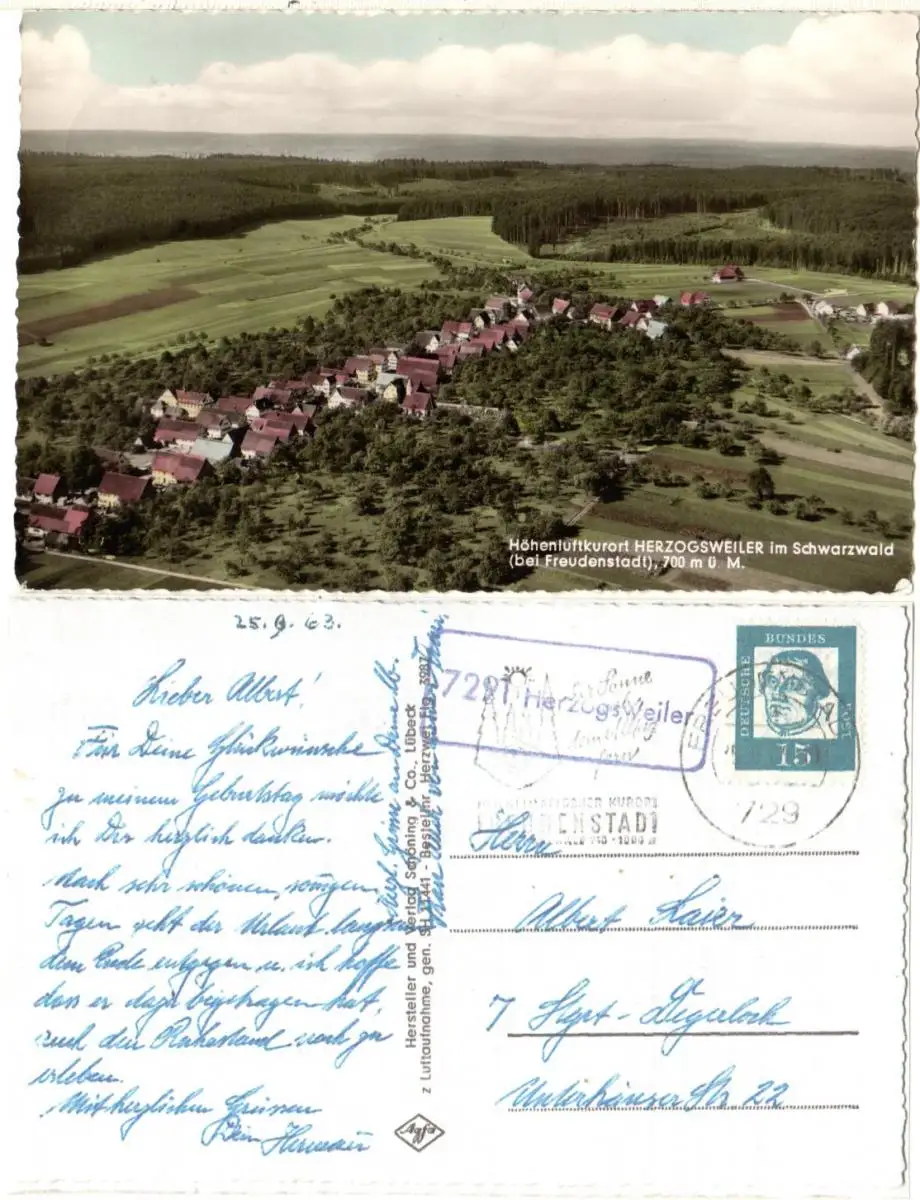 Höhenluftkurort HERZOGSWEILER im Schwarzwald
(bei Freudenstadt), 700 m ü. M.
25. 9. 63.
Lieber Albert!
Für Deine Glückwünsche
zu meinem Geburtstag möchte
ich Dir herzlich danken.
Nach sehr schönen, sonnigen
Tagen geht der Urlaub langsam
dem Ende entgegen u. ich hoffe
dass er dazu beigetragen hat,
auch den Ruhestand noch zu
erleben.
Mit herzlichen Grüssen
Dein Hermann
Herzl. Grüsse an Deine lb.
Frau
Hersteller und Verlag Schöning & Co., Lübeck
z Luftaufnahme, gen. SH - Bestell-Nr. Herzweilg. 3987
Agfa
7291 Herzogsweiler
Sonne
FREUDENSTADT
729
DEUTSCHE BUNDESPOST
15
Herrn
Albert Kaier
7 Stgt-Degerloch
Unterhäuser Str. 22